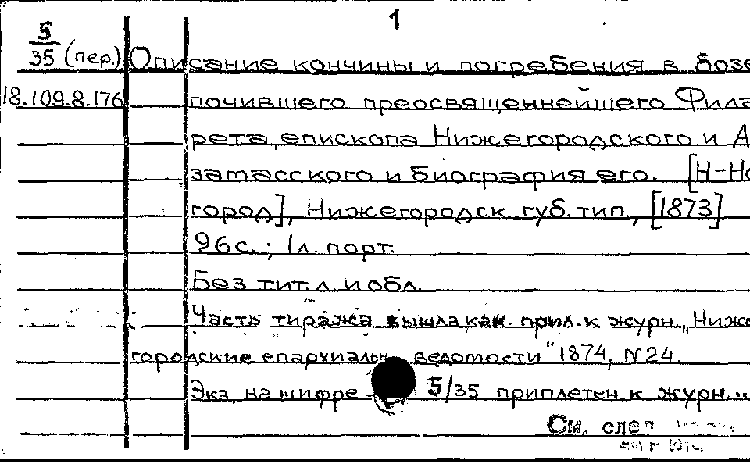 1
5
35 (пер.) Описание кончины и погребения в бозе
18.109.8.176 почившего преосвященнейшего Фила
рета, епископа Нижегородского и А
замасского и биография его. [Н-Но
город], Нижегородск. губ. тип., [1873]
96с.; 1л. порт.
Без тит. л. и обл.
Часть тиража вышла как прил. к журн. „Нижс
городские епархиальн ведомости" 1874, N24.
Экз на шифре 5/35 приплетен к журн. „
См. след